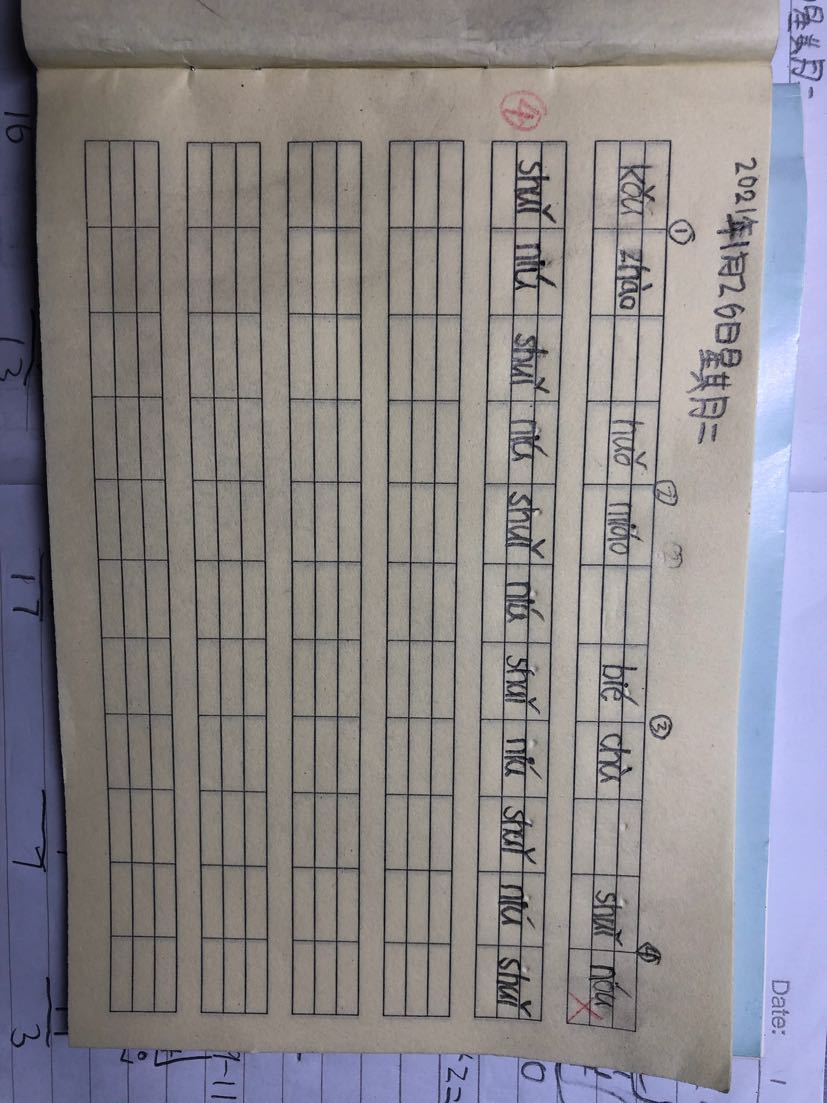 2021年1月26日星其月二
① ② ③ ④
kǒu zhào huǒ miáo bié chù shuǐ nóu
④
shuǐ niú shuǐ niú shuǐ niú shuǐ niú shuǐ niú shuǐ
Date:
16
13
17
3